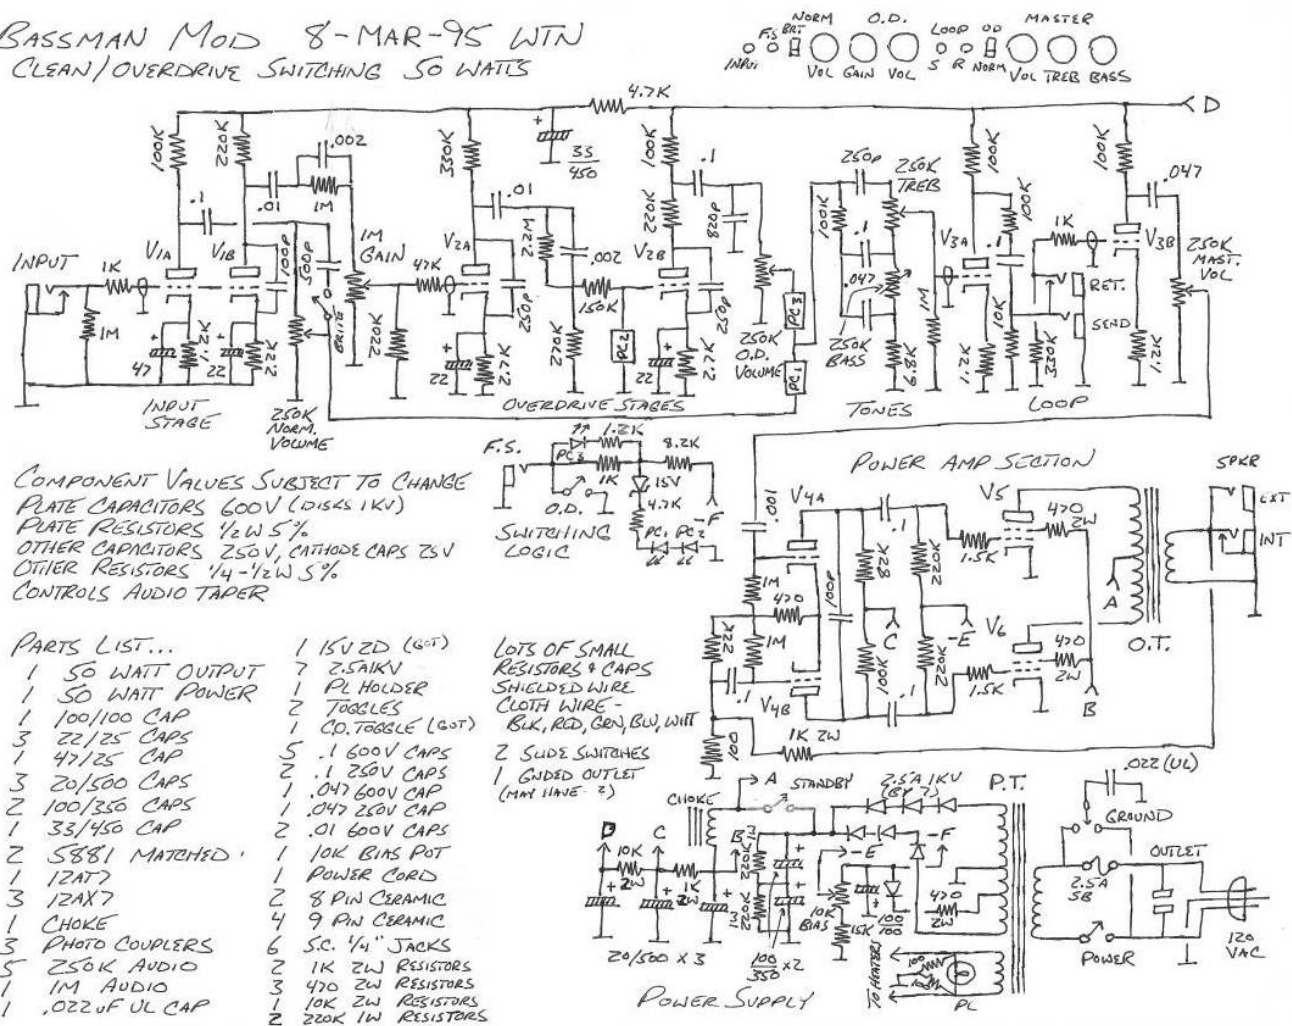 BASSMAN MOD 8-MAR-95 WTN
CLEAN/OVERDRIVE SWITCHING 50 WATTS
NORM O.D. LOOP OD MASTER
F.S BRT
INPUT VOL GAIN VOL S R NORM VOL TREB BASS
4.7K
D
100K
220K
.002
330K
+
33
450
100K
.1
250P
250K
TREB
100K
100K
.047
.1
.01
1M
.01
2.2M
220K
820P
100K
100K
1K
INPUT
V1A
V1B
100P
500P
1M
GAIN
V2A
.002
V2B
.1
V3A
.1
V3B
250K
MAST.
VOL
1K
47K
.047
1M
10K
RET.
1M
BRITE
220K
250P
150K
270K
PC2
250P
250K
O.D.
VOLUME
PC3
PC1
250K
BASS
6.8K
1.2K
330K
SEND
1.2K
+
47
1.2K
+
22
2.2K
+
22
2.7K
+
22
2.7K
INPUT
STAGE
250K
NORM.
VOLUME
OVERDRIVE STAGES
TONES
LOOP
F.S.
1.2K
PC3
1K
8.2K
O.D.
15V
4.7K
-F
PC1 PC2
SWITCHING
LOGIC
COMPONENT VALUES SUBJECT TO CHANGE
PLATE CAPACITORS 600V (DISKS 1KV)
PLATE RESISTORS 1/2W 5%
OTHER CAPACITORS 250V, CATHODE CAPS 25V
OTHER RESISTORS 1/4-1/2W 5%
CONTROLS AUDIO TAPER
POWER AMP SECTION
SPKR
EXT
INT
.001
V4A
.1
V5
470
2W
1.5K
1M
82K
220K
470
100P
A
22K
1M
C
-E
V6
470
2W
O.T.
100K
220K
1.5K
.1
V4B
.1
B
100
1K 2W
PARTS LIST...
1 50 WATT OUTPUT
1 50 WATT POWER
1 100/100 CAP
3 22/25 CAPS
1 47/25 CAP
3 20/500 CAPS
2 100/350 CAPS
1 33/450 CAP
2 5881 MATCHED
1 12AT7
3 12AX7
1 CHOKE
3 PHOTO COUPLERS
5 250K AUDIO
1 1M AUDIO
1 .022uF UL CAP
1 15V ZD (GOT)
7 2.5A1KV
1 PL HOLDER
2 TOGGLES
1 C.O. TOGGLE (GOT)
5 .1 600V CAPS
2 .1 250V CAPS
1 .047 600V CAP
1 .047 250V CAP
2 .01 600V CAPS
1 10K BIAS POT
1 POWER CORD
2 8 PIN CERAMIC
4 9 PIN CERAMIC
6 S.C. 1/4" JACKS
2 1K 2W RESISTORS
3 470 2W RESISTORS
1 10K 2W RESISTORS
2 220K 1W RESISTORS
LOTS OF SMALL
RESISTORS & CAPS
SHIELDED WIRE
CLOTH WIRE -
BLK, RED, GRN, BLU, WHT
2 SLIDE SWITCHES
1 GNDED OUTLET
(MAY HAVE 2)
A
STANDBY
2.5A 1KV
(BY 7)
P.T.
.022 (UL)
CHOKE
GROUND
D
C
B
-E
-F
OUTLET
10K
2W
1K
2W
220K
220K
10K
BIAS
15K
100
100
470
2W
2.5A
SB
20/500 X 3
100
350
X2
TO HEATERS
100
100
PL
POWER
120
VAC
POWER SUPPLY